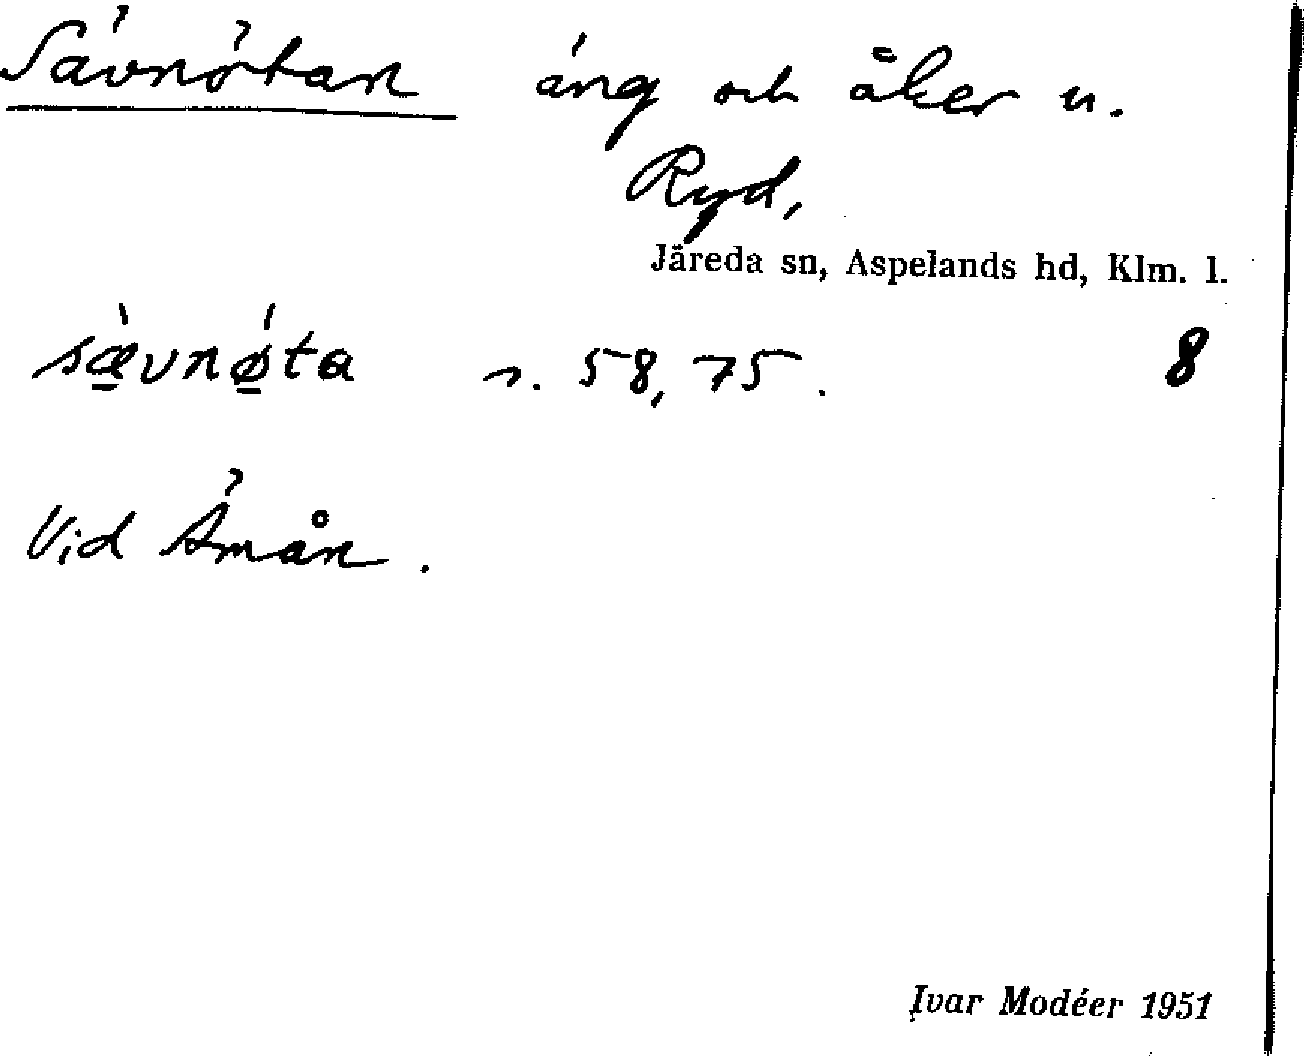 Sävnötan äng och åker u.
Ryd,
Järeda sn, Aspelands hd, Klm. l.
sæ̠̀vnǿ̠ta s. 58, 75. 8
Vid Åmån.
Ivar Modéer 1951